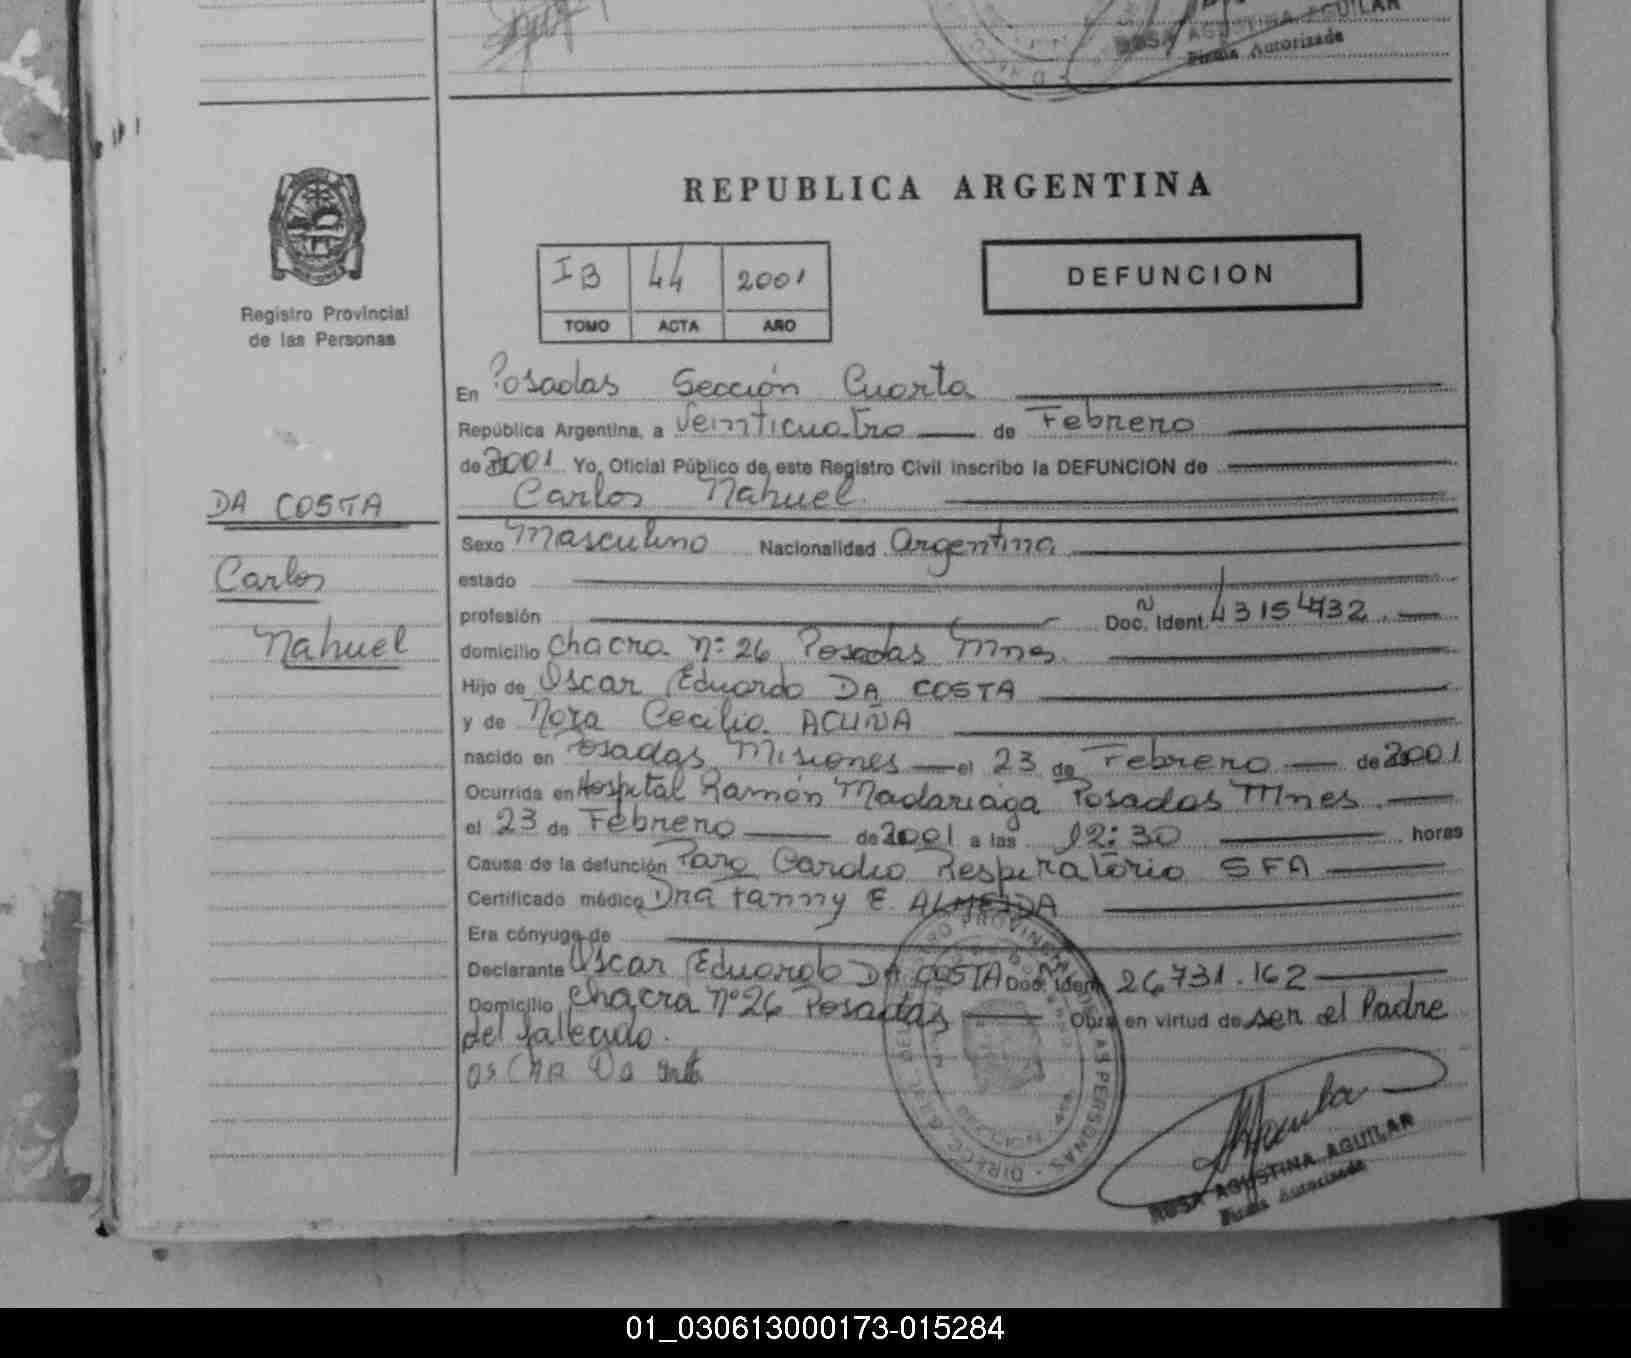 ROSA AGUSTINA AGUILAR
Firma Autorizada
REPUBLICA ARGENTINA
IB 44 2001
TOMO ACTA AÑO
DEFUNCION
Registro Provincial
de las Personas
DA COSTA
Carlos
Nahuel
En Posadas Sección Cuarta
República Argentina, a Veinticuatro de Febrero
de 2001 Yo, Oficial Público de este Registro Civil inscribo la DEFUNCION de
Carlos Nahuel
Sexo Masculino Nacionalidad Argentina
estado
profesión Doc. Ident. 43154732
domicilio Chacra Nº 26 Posadas Mnes.
Hijo de Oscar Eduardo DA COSTA
y de Nora Cecilia ACUÑA
nacido en Posadas Misiones el 23 de Febrero de 2001
Ocurrida en Hospital Ramón Madariaga Posadas Mnes.
el 23 de Febrero de 2001 a las 12:30 horas
Causa de la defunción Paro Cardio Respiratorio SFA
Certificado médico Dra Fanny E. ALMEIDA
Era cónyuge de
Declarante Oscar Eduardo DA COSTA Doc. Ident. 26.731.162
Domicilio Chacra Nº 26 Posadas Obra en virtud de ser el Padre
del fallecido.
ROSA AGUSTINA AGUILAR
Firma Autorizada
01_030613000173-015284